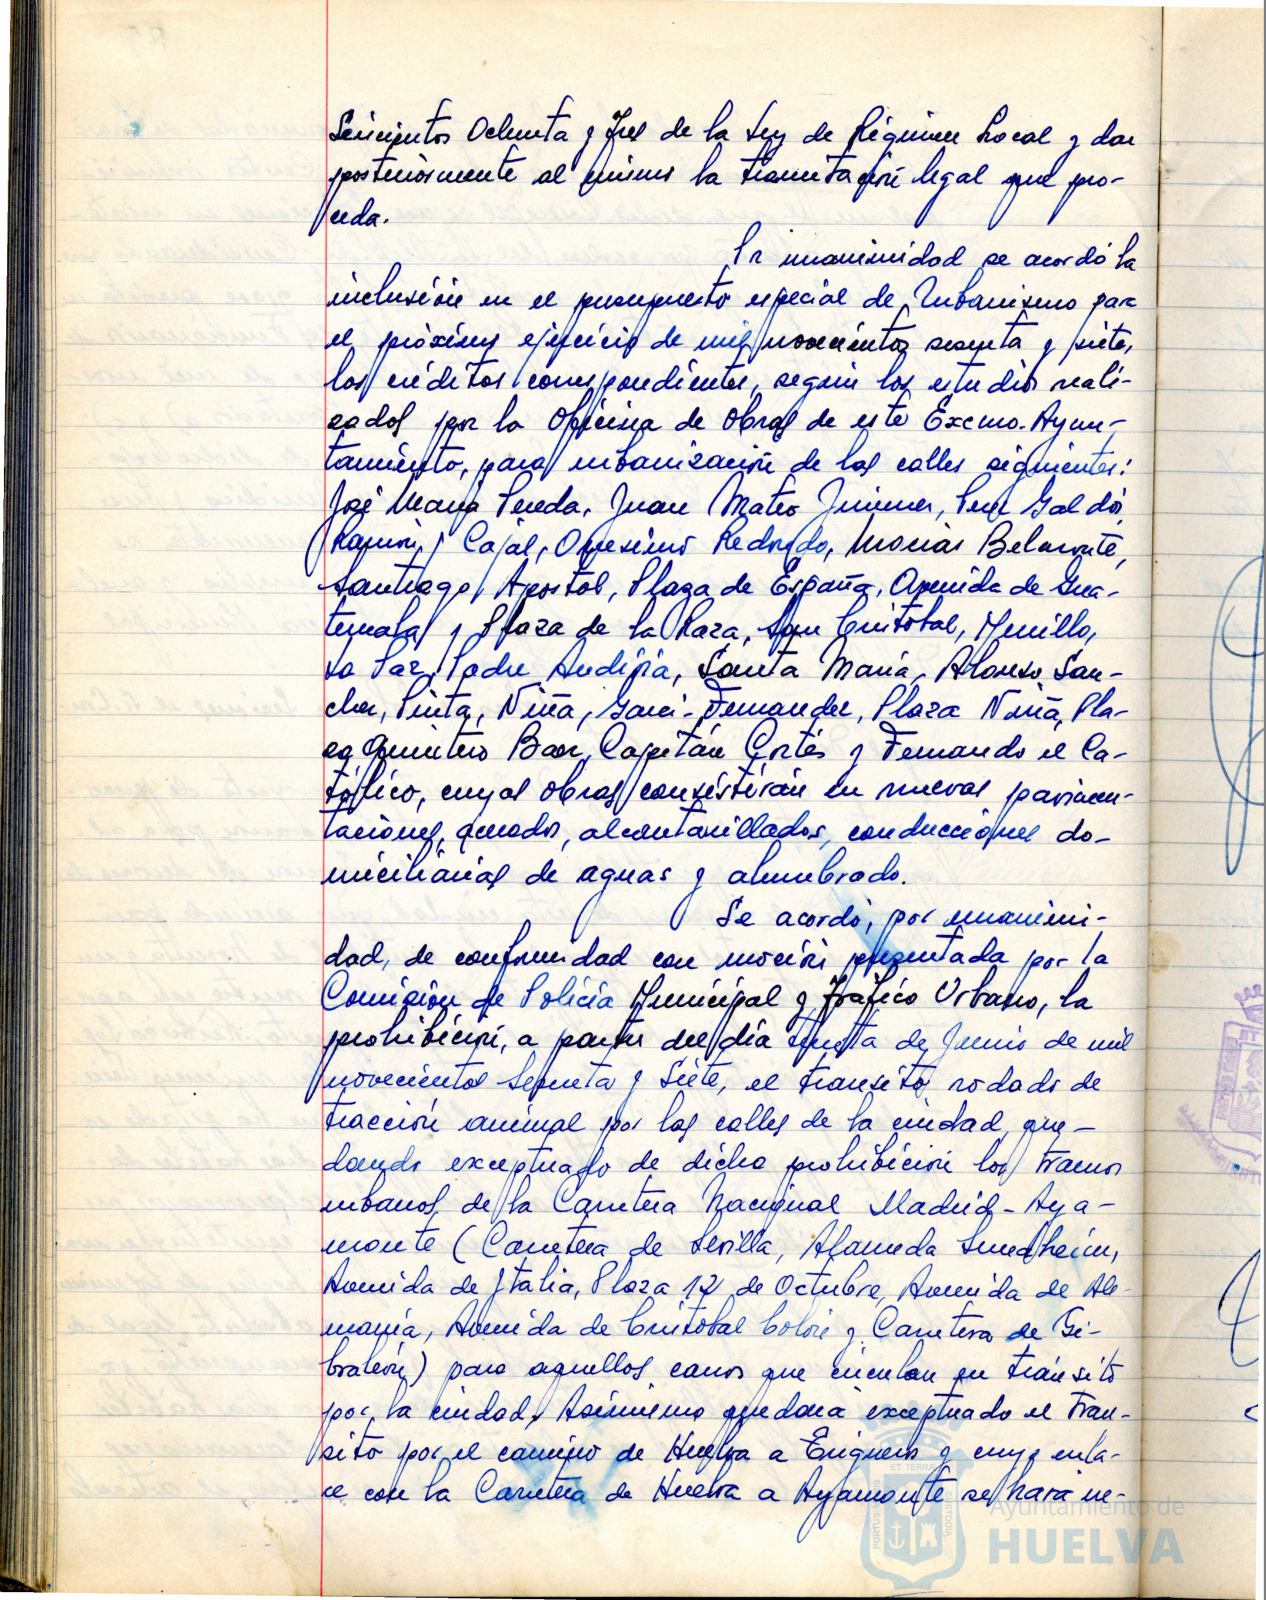 Seiscientos Ochenta y Tres de la Ley de Régimen Local y dar
posteriormente al mismo la tramitación legal que pro-
ceda.
Por unanimidad se acordó la
inclusión en el presupuesto especial de Urbanismo para
el próximo ejercicio de mil novecientos sesenta y siete,
los créditos correspondientes, según los estudios reali-
zados por la Oficina de Obras de este Excmo. Ayun-
tamiento, para urbanización de las calles siguientes:
José María Pereda, Juan Mateo Jimenez, Perez Galdós,
Ramón y Cajal, Onesimo Redondo, Macias Belmonte,
Santiago Apostol, Plaza de España, Avenida de Gua-
temala y Plaza de la Raza, San Cristobal, Murillo,
La Paz, Padre Andivia, Santa María, Alonso San-
chez, Pinta, Niña, Garci-Fernandez, Plaza Niña, Pla-
za Quintero Baez, Capitán Cortés y Fernando el Ca-
tólico, cuyas obras consistirán en nuevas pavimen-
taciones, acerados, alcantarillados, conducciones do-
miciliarias de aguas y alumbrado.
Se acordó, por unanimi-
dad, de conformidad con moción presentada por la
Comisión de Policía Municipal y Tráfico Urbano, la
prohibición, a partir del día treinta de Junio de mil
novecientos Sesenta y Siete, el transito rodado de
tracción animal por las calles de la ciudad, que-
dando exceptuado de dicha prohibición los tramos
urbanos de la Carretera Nacional Madrid-Aya-
monte (Carretera de Sevilla, Alameda Sundheim,
Avenida de Italia, Plaza 12 de Octubre, Avenida de Ale-
mania, Avenida de Cristobal Colón y Carretera de Gi-
braleón) para aquellos carros que circulan en tránsito
por la ciudad. Asimismo quedará exceptuado el tran-
sito por el camino de Huelva a Trigueros y cuyo enla-
ce con la Carretera de Huelva a Ayamonte se hará ne-
ET TERRAE
PORTUS
CUSTODIA
Ayuntamiento de
HUELVA